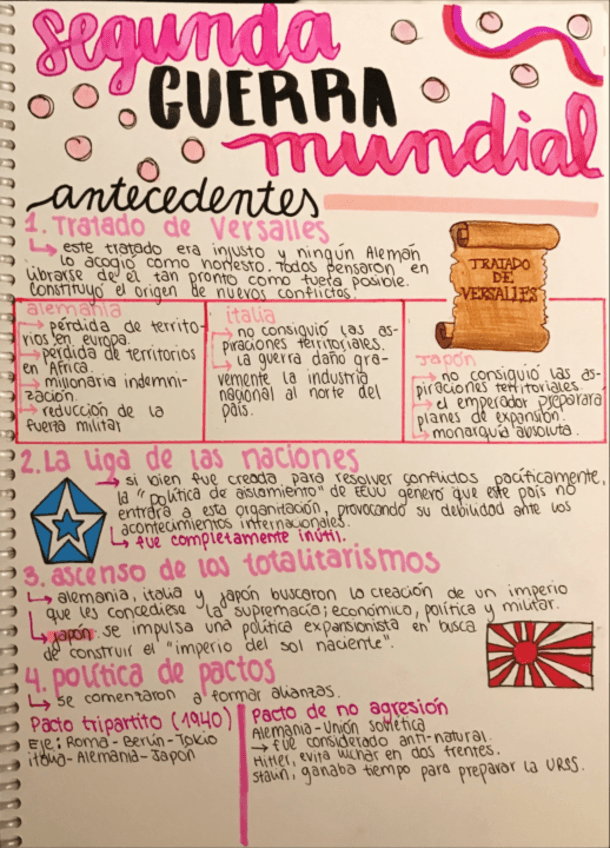 segunda
GUERRA
mundial
antecedentes
1. Tratado de Versalles
↳ este tratado era injusto y ningún Alemán
lo acogió como honesto. Todos pensaron en
librarse de él tan pronto como fuera posible.
Constituyó el origen de nuevos conflictos.
TRATADO
DE
VERSALLES
alemania
→ pérdida de territo-
rios en europa.
→ pérdida de territorios
en África.
→ millonaria indemni-
zación.
→ reducción de la
fuerza militar
italia
→ no consiguió las as-
piraciones territoriales.
→ la guerra daño gra-
vemente la industria
nacional al norte del
país.
Japón
→ no consiguió las as-
piraciones territoriales.
→ el emperador preparara
planes de expansión.
→ monarquía absoluta.
2. La liga de las naciones
→ si bien fue creada para resolver conflictos pacíficamente,
la "política de aislamiento" de EEUU género que este país no
entrará a esta organización, provocando su debilidad ante los
acontecimientos internacionales.
↳ fue completamente inútil.
3. ascenso de los totalitarismos
↳ alemania, italia y japón buscaron la creación de un imperio
que les concediese la supremacía; económico, política y militar.
↳ japón: se impulsa una política expansionista en busca
de construir el "imperio del sol naciente".
4. política de pactos
↳ se comentaron a formar alianzas.
Pacto tripartito (1940)
Eje: Roma-Berlín-Tokio
italia-Alemania-Japón
Pacto de no agresión
Alemania-Unión soviética
→ fue considerado anti-natural.
Hitler, evita luchar en dos frentes.
Stalin, ganaba tiempo para preparar la URSS.